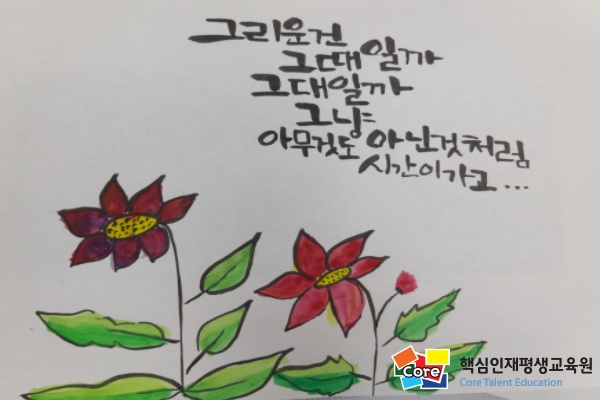 그리운건
그때일까
그대일까
그냥
아무것도 아닌것처럼
시간이가고...
Core
핵심인재평생교육원
Core Talent Education